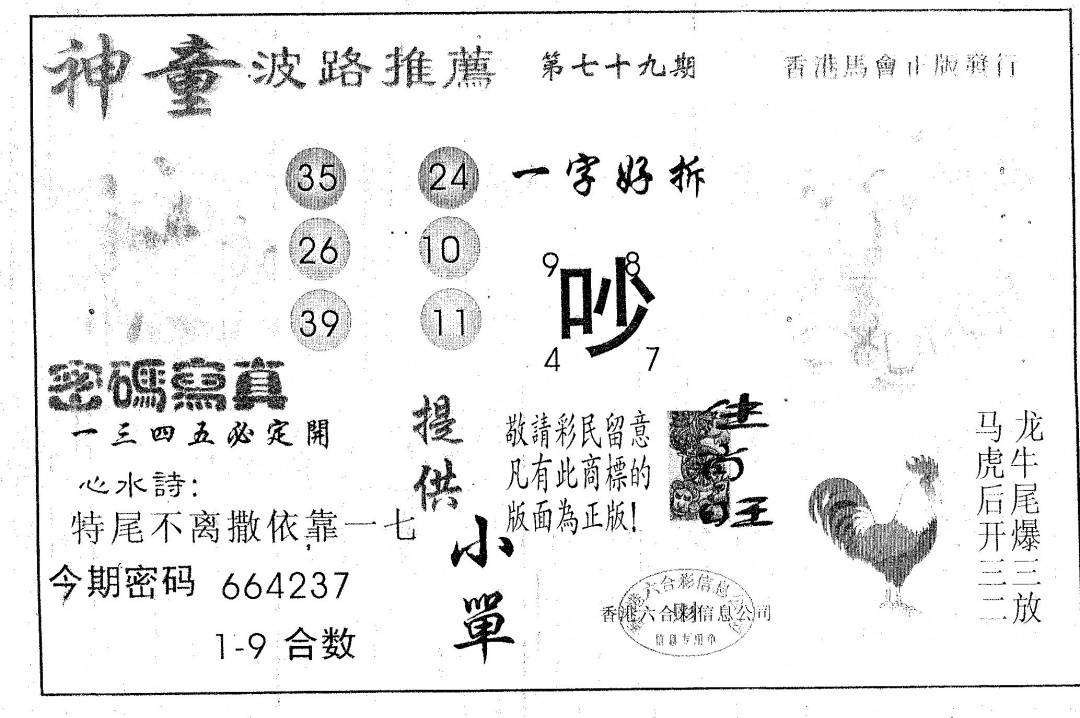 神童波路推薦 第七十九期 香港馬會正版發行
35 24 一字好拆
26 10
39 11
9 8
吵
4 7
密碼寫真
一三四五必定開
心水詩:
特尾不离撒依靠一七
今期密码 664237
1-9 合数
提供
小單
敬請彩民留意
凡有此商標的
版面為正版!
香港六合彩信息公司
龙牛尾爆三放
马虎后开三二